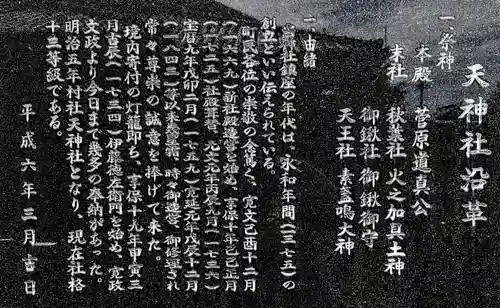 天神社沿革
一、祭神
本殿 菅原道真公
末社 秋葉社 火之加具土神
御鍬社 御鍬御守
天王社 素盞嗚大神
一、由緒
当神社鎮座の年代は、永和年間(一三七五)の
創立といい伝えられている。
町民各位の崇敬の念篤く、寛文己酉十二月
(一六六九)新社殿造営を始め、享保十年乙巳正月
(一七二五)社殿葺替、元文元年丙辰九月(一七三六)
宝暦九年戊卯二月(一七五九)、寛延元年戊辰十二月
(一八四三)等以来葺替、時々御造営、御修理され
常々尊崇の誠意を捧げて来た。
境内寄付の灯籠即ち、享保十九年甲寅三
月吉辰(一七三四)伊藤徳左衛門を始め、寛政
文政より今日まで幾多の奉納があった。
明治五年村社天神社となり、現在社格
十三等級である。
平成六年三月吉日